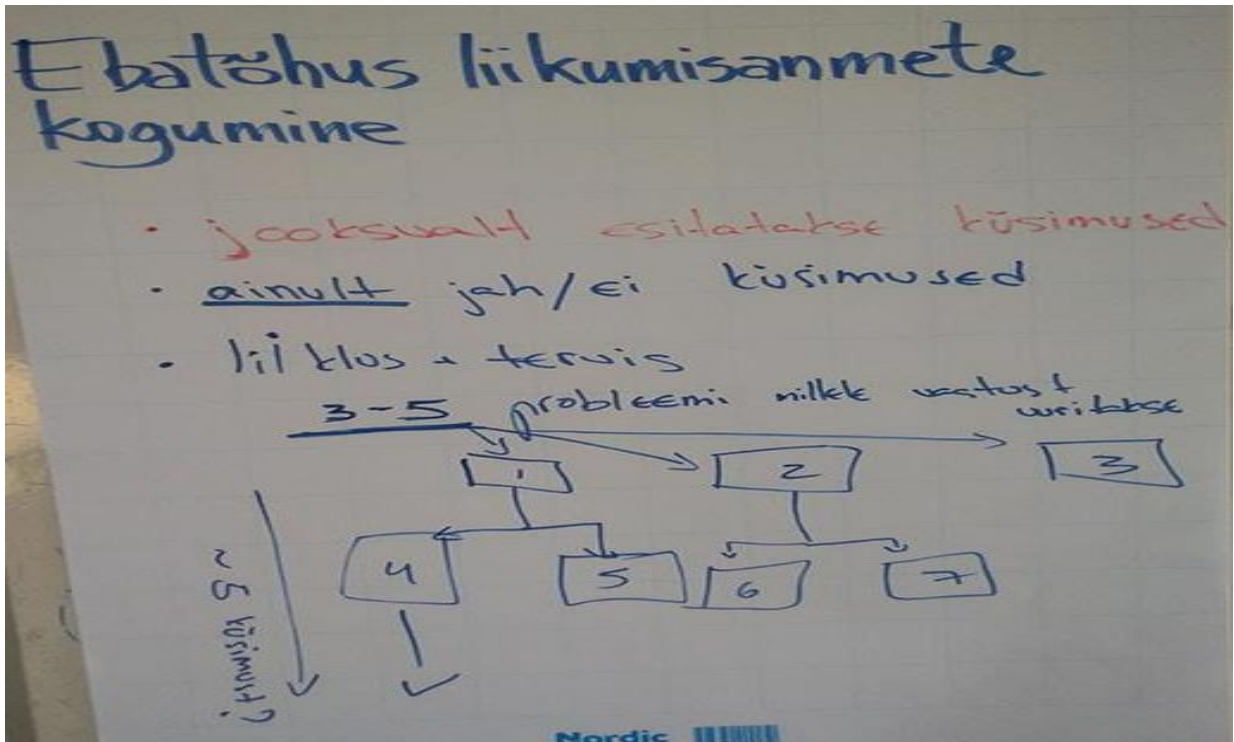 Ebatõhus liikumisanmete
kogumine
• jooksvalt esitatakse küsimused
• ainult jah/ei küsimused
• liiklus + tervis
3-5 probleemi millele vastust
uuritakse
1
2
3
4
5
6
7
~ 5 küsimust?
Nordic